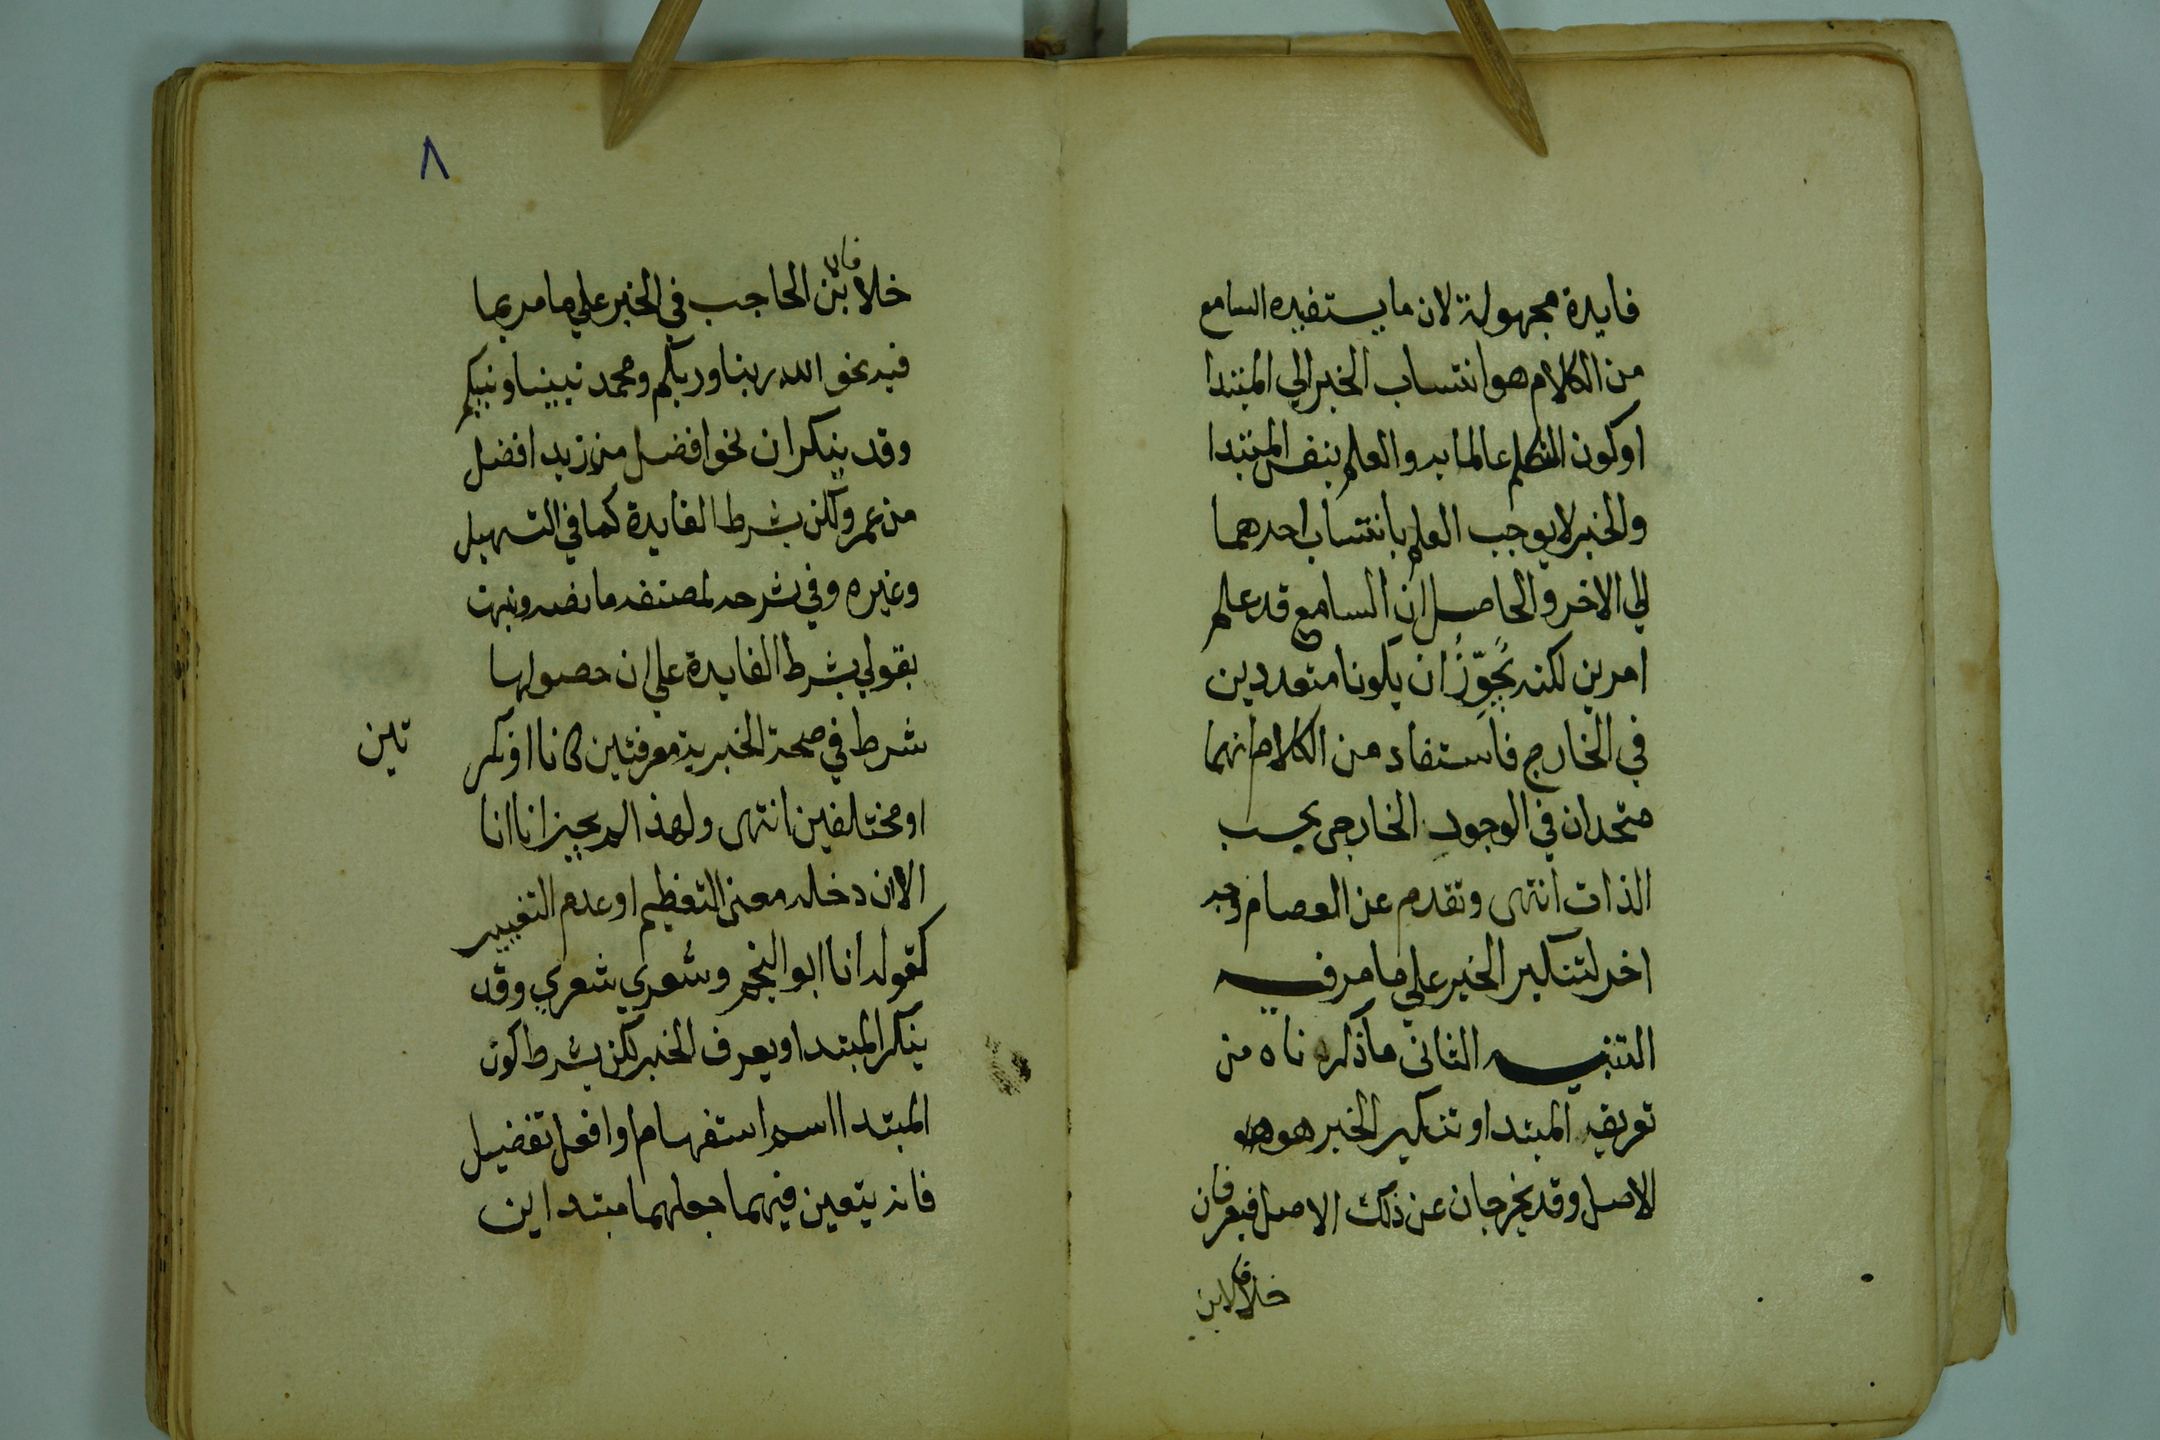 فايدة مجهولة لان ما يستفيده السامع
من الكلام هو انتساب الخبر الي المبتدا
او كون المتكلم عالما به والعلم بنفس المبتدا
والخبر لا يوجب العلم بانتساب احدهما
الي الاخر والحاصل ان السامع قد علم
امرين لكنه يُجوِّزُ ان يكونا متعددين
في الخارج فاستفاد من الكلام انهما
متحدان في الوجود الخارجى بحسب
الذات انتهى وتقدم عن العصام وجه
اخر لتنكير الخبر علي ما مر فيه
التنبيه الثانى ما ذكرناه من
تعريف المبتدا وتنكير الخبر هو
الاصل وقد يخرجان عن ذلك الاصل فيعرفان
خلافا لابن
٨
خلافا لابن الحاجب في الخبر علي ما مر بما
فيه نحو الله ربنا وربكم ومحمد نبينا ونبيكم
وقد ينكران نحو افضل من زيد افضل
من عمرو لكن بشرط الفايدة كما في التسهيل
وغيره وفي شرحه لمصنفه ما نصه ونبهت
بقولي بشرط الفايدة علي ان حصولها
شرط في صحة الخبرية معرفتين كانا او نكر
تين
او مختلفين انتهى ولهذا لم يجيز انا انا
الا ان دخله معنى التعظيم او عدم التغيير
كقوله انا ابو النجم وشعري شعري وقد
ينكر المبتدا ويعرف الخبر لكن بشرط كون
المبتدا اسم استفهام او افعل تفضيل
فانه يتعين فيهما جعلهما مبتداين